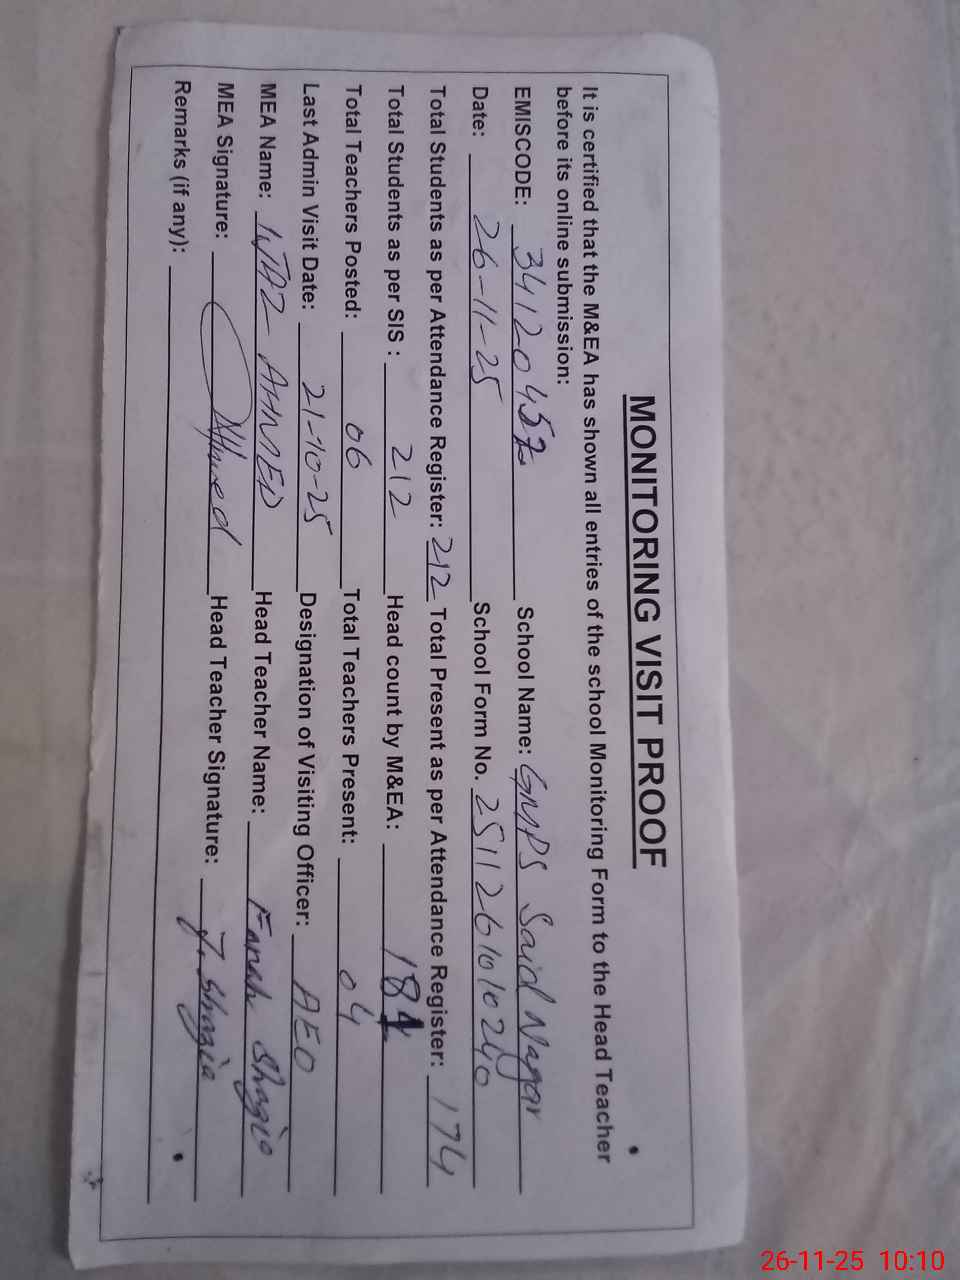 MONITORING VISIT PROOF
It is certified that the M&EA has shown all entries of the school Monitoring Form to the Head Teacher
before its online submission:
EMISCODE: 34120457 School Name: GMPS Said Nagar
Date: 26-11-25 School Form No. 2511261010240
Total Students as per Attendance Register: 212 Total Present as per Attendance Register: 174
Total Students as per SIS : 212 Head count by M&EA: 184
Total Teachers Posted: 06 Total Teachers Present: 04
Last Admin Visit Date: 21-10-25 Designation of Visiting Officer: AEO
MEA Name: IJAZ AHMED Head Teacher Name: Farah Shazia
MEA Signature: Ahmed Head Teacher Signature: F. Shazia
Remarks (if any):
26-11-25 10:10